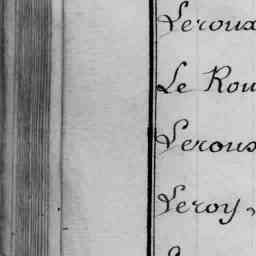 Leroux
Le Rou
Lerous
Leroy,